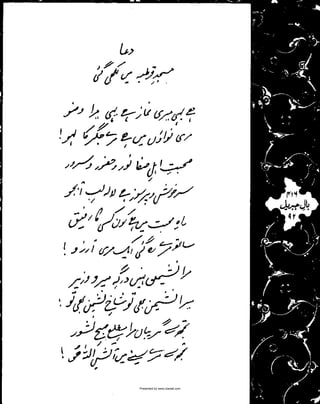 دعا
مسجد قرطبہ میں لکھی گئی
ہے یہی میری نماز ، ہے یہی میرا وضو
میری نواؤں میں ہے میرے جگر کا لہو!
صحبتِ اہلِ صفا ، نور و حضور و سرور
سرخوش و پرسوز ہے لالہ لبِ آبجو
راہِ محبت میں ہے کون کسی کا رفیق
ساتھ مرے رہ گئی ایک مری آرزو!
میرا نشیمن نہیں درگہِ میر و وزیر
میرا نشیمن بھی تو ، شاخِ نشیمن بھی تو!
تجھ سے گریباں مرا مطلعِ صبحِ نشور
تجھ سے مرے سینے میں آتشِ اللہ ھُو!
بالِ جبریل
۹۲
Presented by www.ziaraat.com